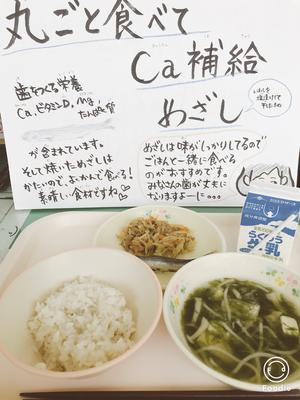 丸ごと食べて
Ca補給
めざし
いわしを
塩漬けして
干したもの
歯をつくる栄養
Ca、ビタミンD、Mg
たんぱく質
が含まれています。
そして焼いためざしは
かたいので、よくかんで食べる!
素晴しい食材ですね
めざしは味がしっかりしてるので
ごはんと一緒に食べる
のがおすすめです。
みなさんの歯が丈夫に
なりますよーに…
らくのう
牛乳
Foodie